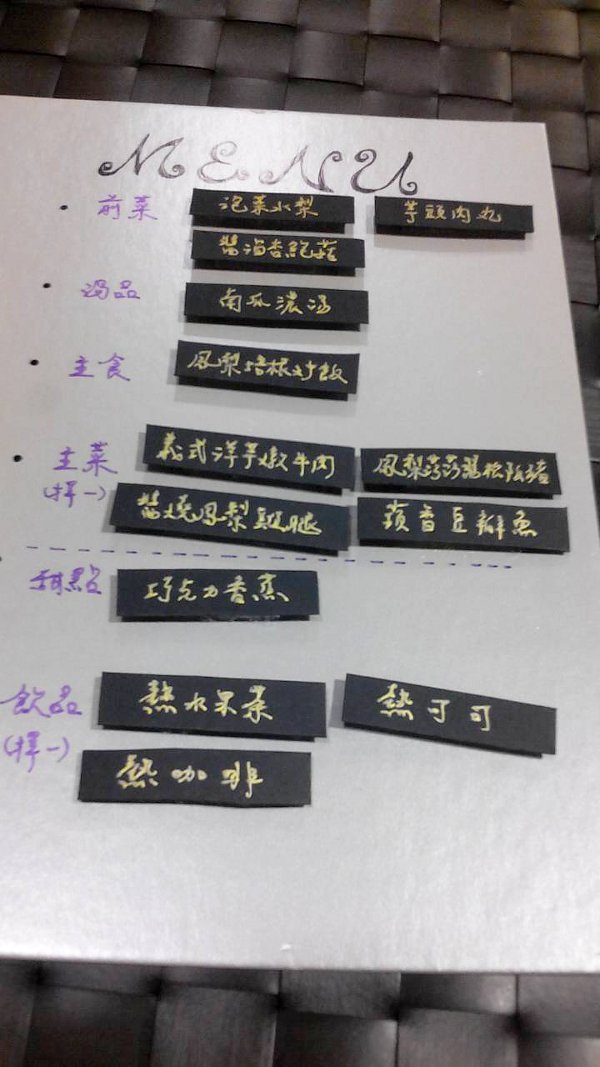 MENU
前菜 泡菜水梨 芋頭肉丸
醬滷杏鮑菇
湯品 南瓜濃湯
主食 鳳梨培根炒飯
主菜 義式洋芋燉牛肉 鳳梨莎莎醬松阪豬
(擇一) 醬燒鳳梨雞腿 蒜香豆瓣魚
甜點 巧克力香蕉
飲品 熱水果茶 熱可可
(擇一) 熱咖啡